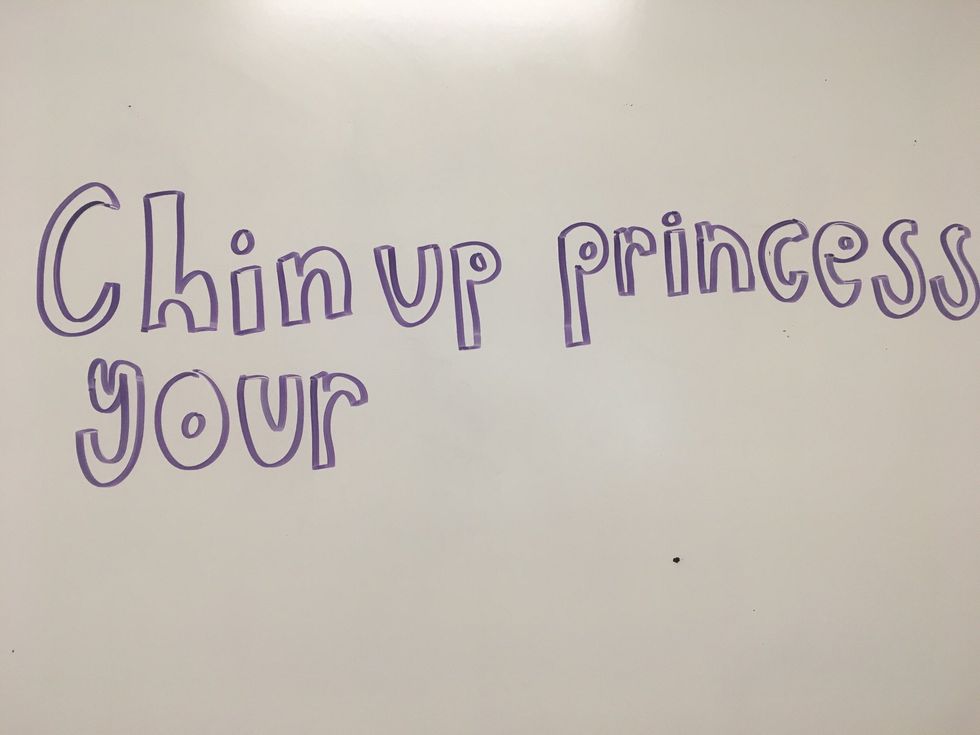 Chin up princess
your